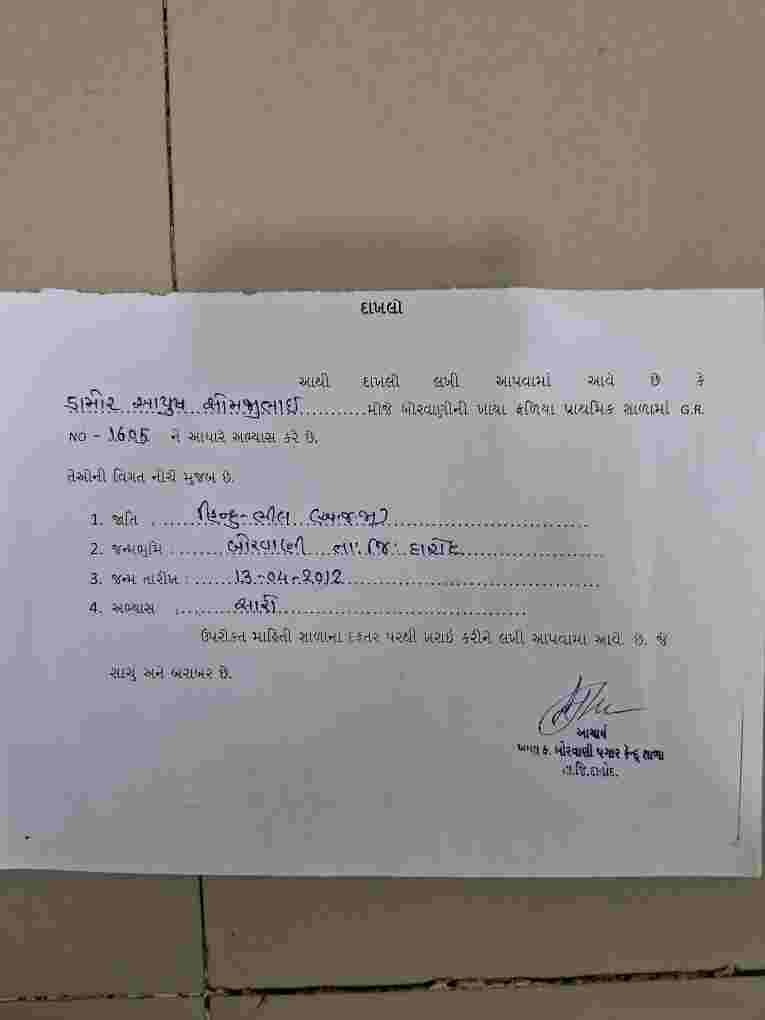 દાખલો
આથી દાખલો લખી આપવામાં આવે છે કે
ડામોર આયુષ સોમજીભાઇ............ મોજે બોરવાણીની ખાયા ફળિયા પ્રાથમિક શાળામાં G.R.
NO - 1605 ને આધારે અભ્યાસ કરે છે.
તેઓની વિગત નીચે મુજબ છે.
1. જાતિ : હિન્દુ-ભીલ (અજજા)
2. જન્મભૂમિ : બોરવાણી તા. જિ. દાહોદ
3. જન્મ તારીખ : 13-04-2012
4. અભ્યાસ : સારો
ઉપરોક્ત માહિતી શાળાના દફતર પરથી ખરાઇ કરીને લખી આપવામા આવે. છે. જે
સાચુ અને બરાબર છે.
આચાર્ય
બોરવાણી પગાર કેન્દ્ર શાળા
તા.જિ.દાહોદ.